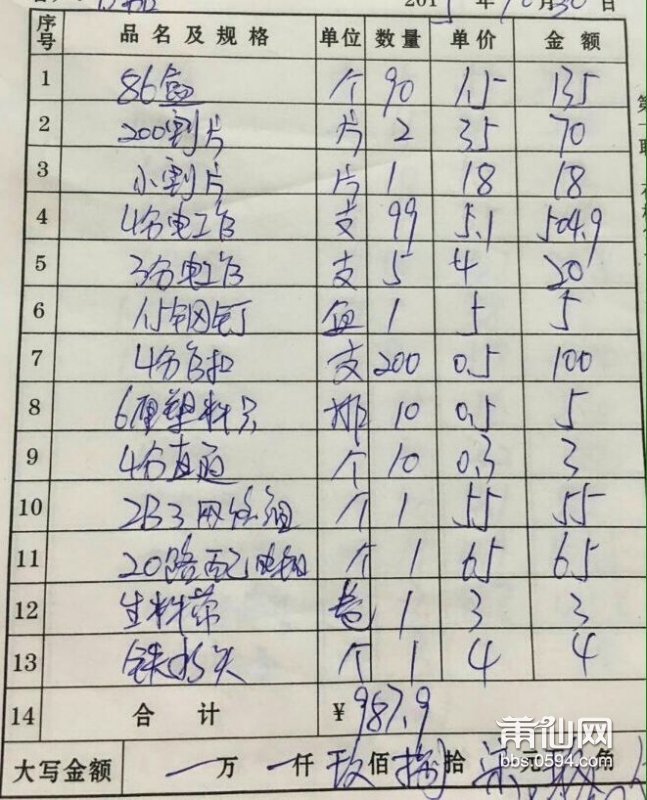 2015年10月30日
序号 品名及规格 单位 数量 单价 金额
1 86盒 个 90 1.5 135
2 200割片 片 2 35 70
3 小割片 片 1 18 18
4 4分电工管 支 99 5.1 504.9
5 3分电工管 支 5 4 20
6 1.5钢钉 盒 1 5 5
7 4分管扣 支 200 0.5 100
8 6厘塑料 排 10 0.5 5
9 4分直通 个 10 0.3 3
10 个 1 55 55
11 20路配电箱 个 1 65 65
12 生料带 卷 1 3 3
13 铁 头 个 1 4 4
14 合计 ¥987.9
大写金额 万 仟 玖佰 捌拾 元 角
莆仙网
bbs.0594.com